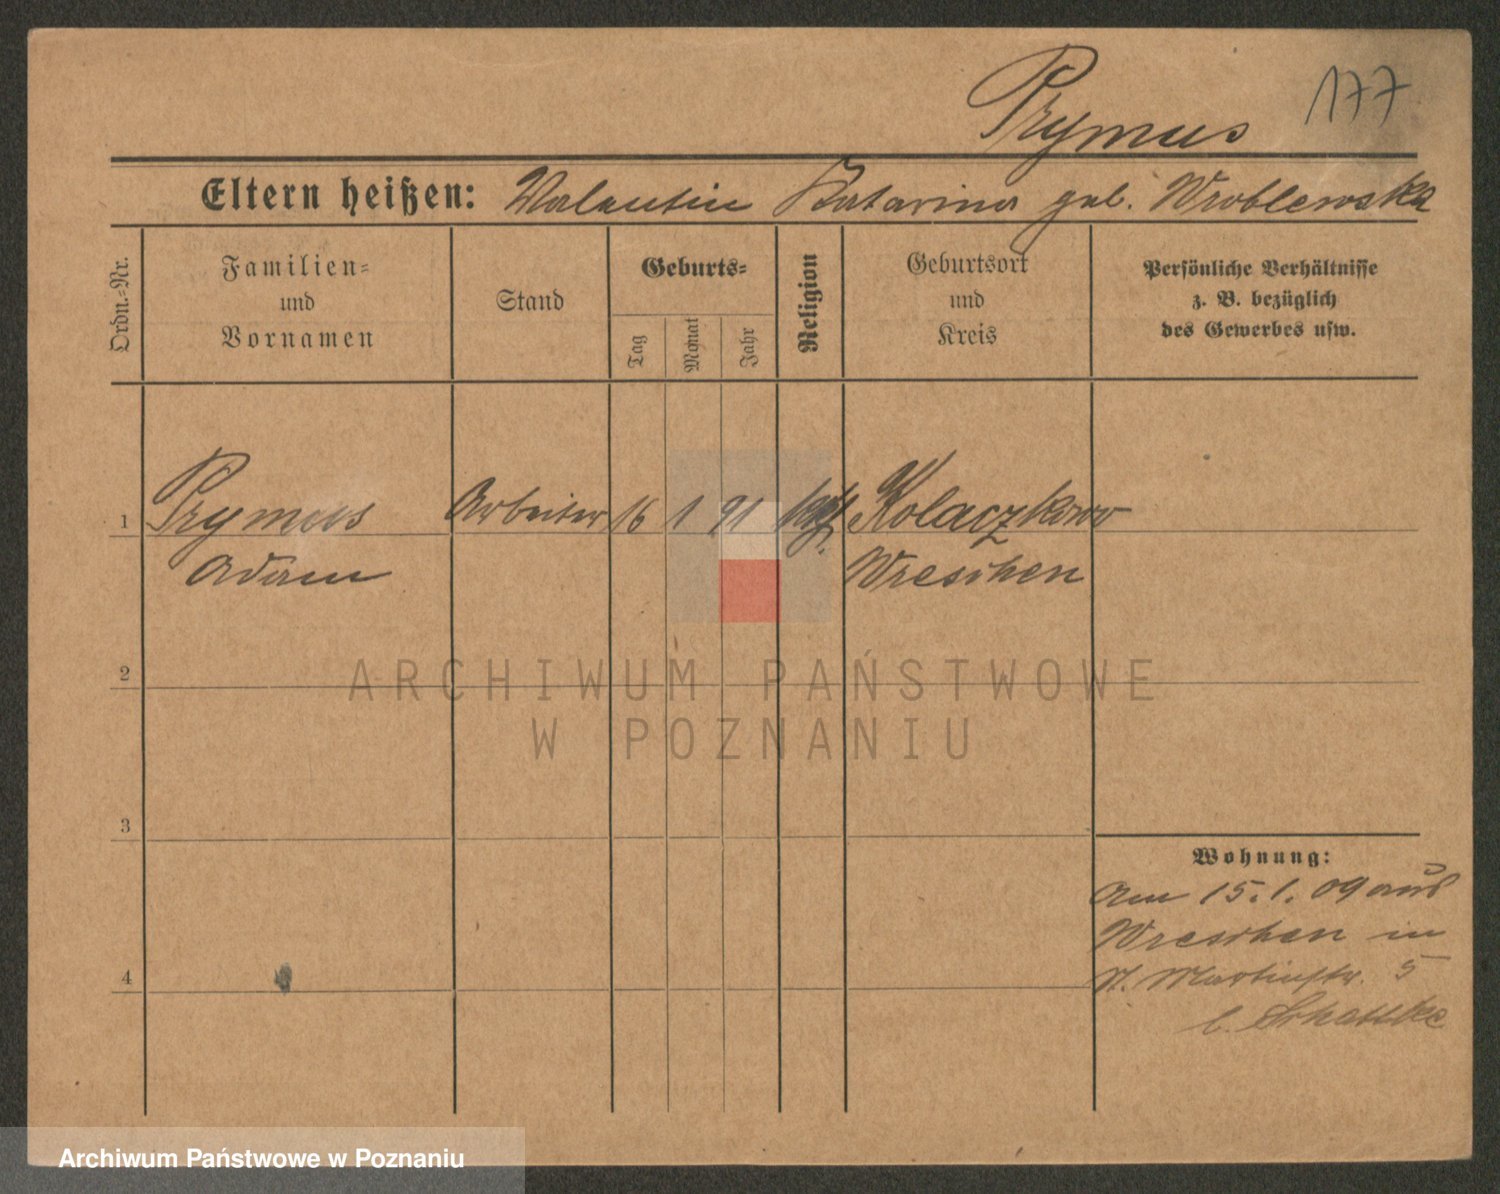 Prymus 177
Eltern heißen: Valentin Katarina geb. Wroblewska
Ordn.-Nr.
Familien-
und
Vornamen
Stand
Geburts-
Tag
Monat
Jahr
Religion
Geburtsort
und
Kreis
Persönliche Verhältnisse
z. B. bezüglich
des Gewerbes usw.
1 Prymus Arbeiter 16 1 91 kath. Kolaczkowo
Adam Wreschen
2
ARCHIWUM PAŃSTWOWE
W POZNANIU
3
Wohnung:
Am 15.1.09 aus
Wreschen in
St. Martinstr. 5
4
b. Schattke
Archiwum Państwowe w Poznaniu